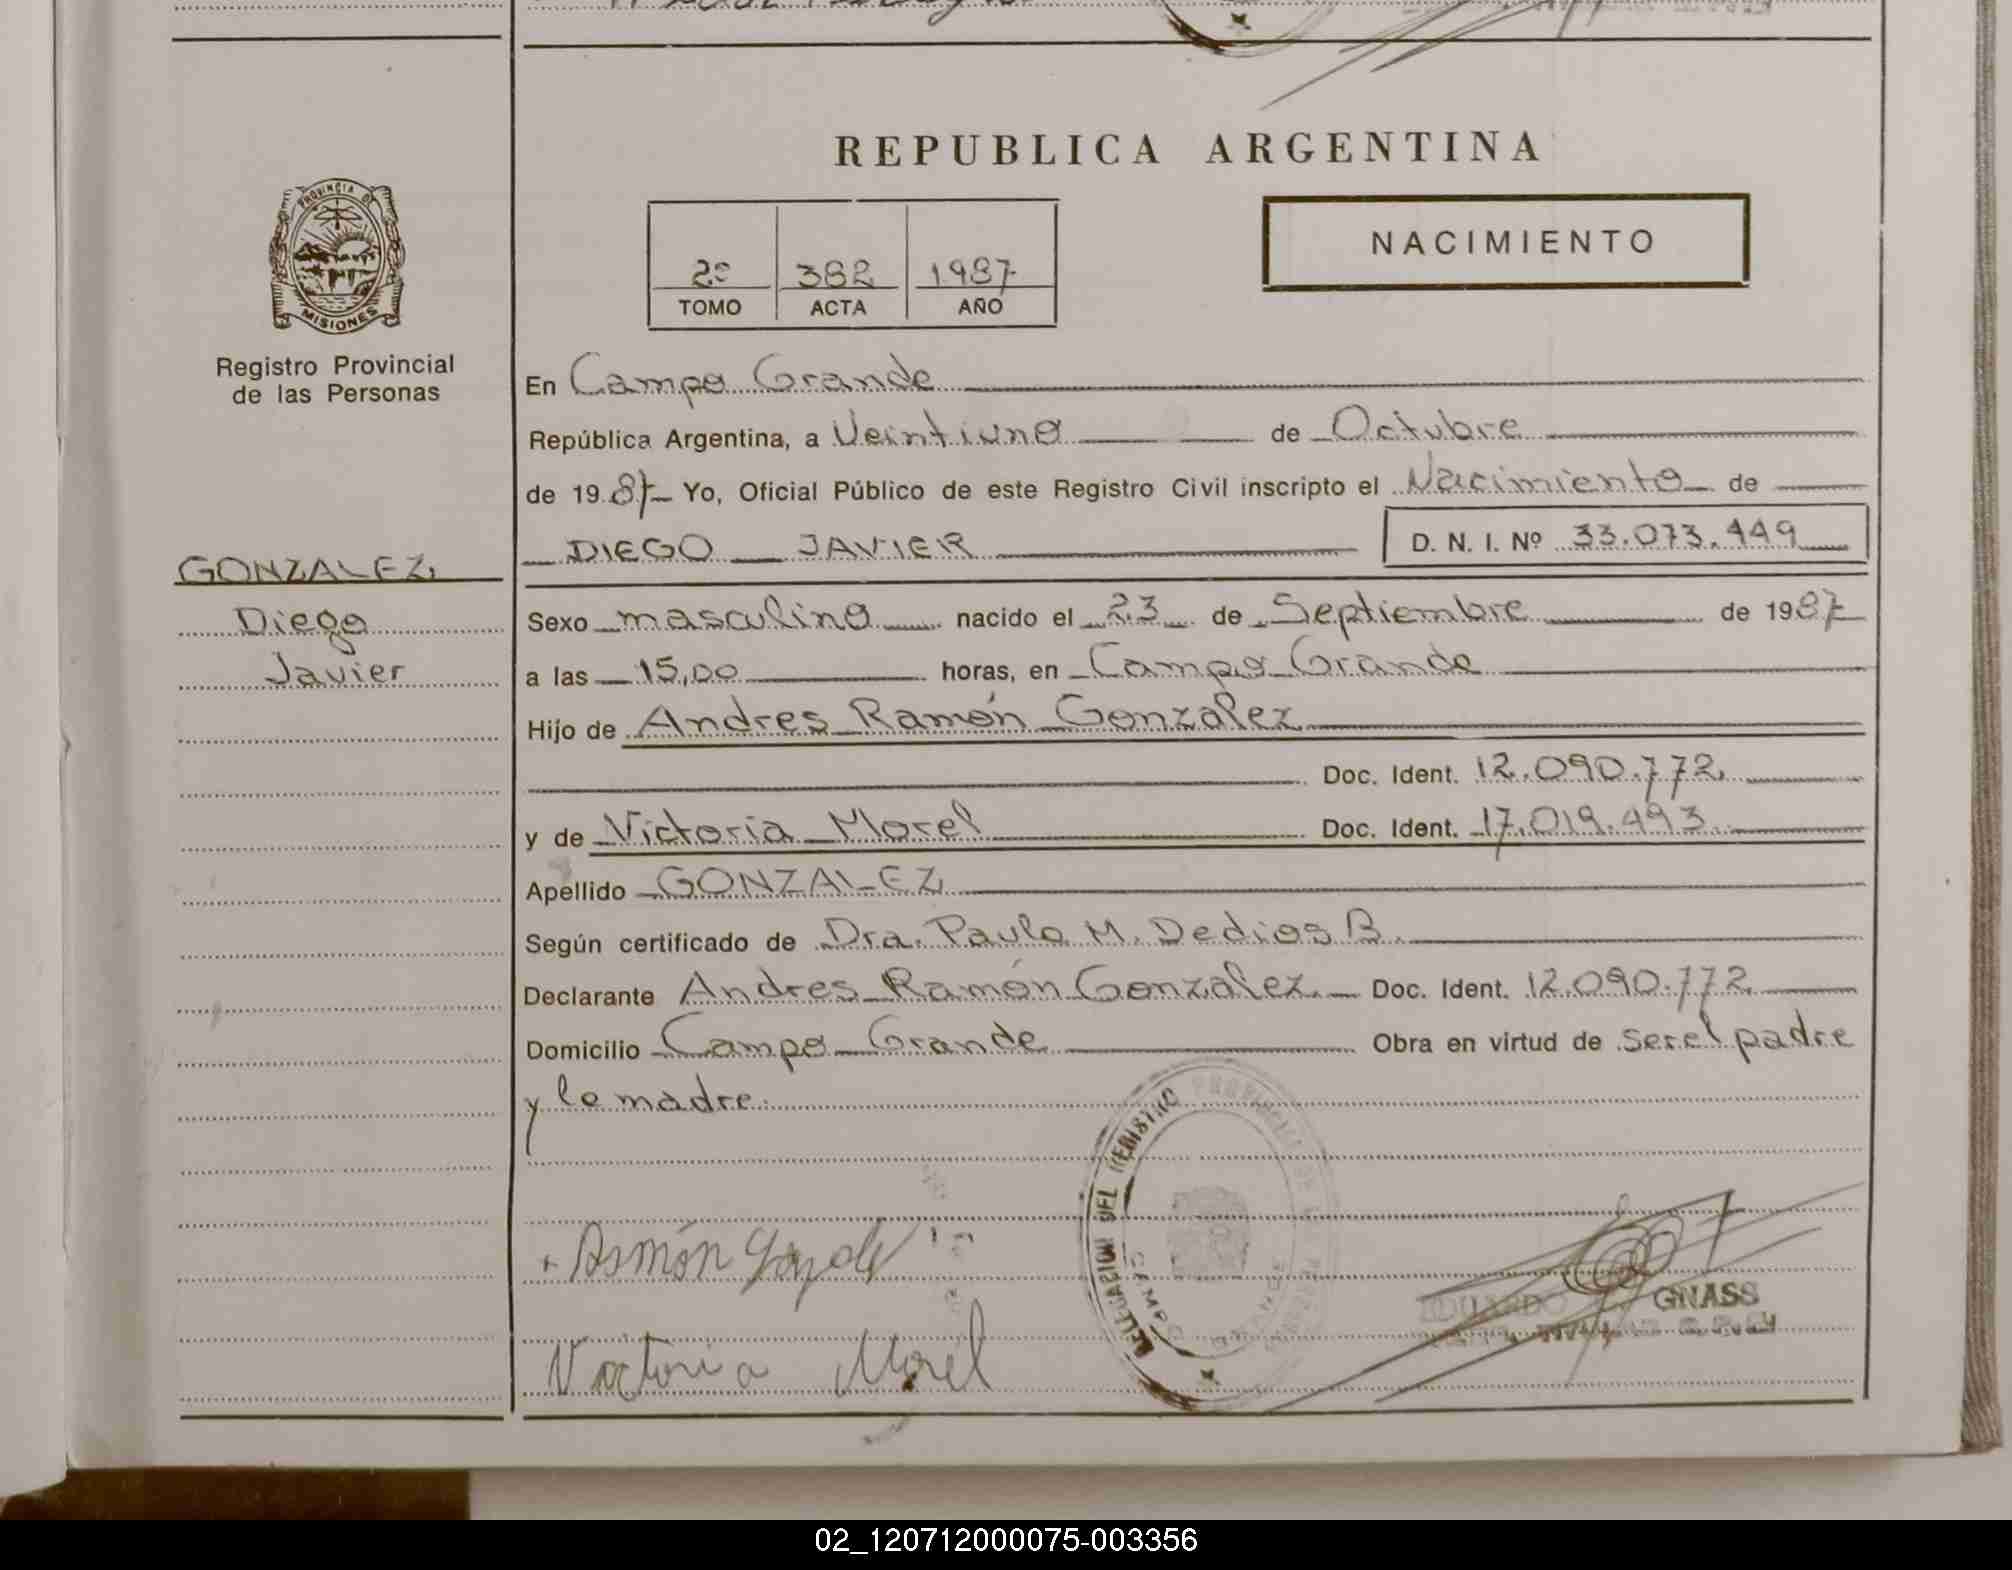 REPUBLICA ARGENTINA
PROVINCIA DE
MISIONES
Registro Provincial
de las Personas
GONZALEZ,
Diego
Javier
2º 382 1987
TOMO ACTA AÑO
NACIMIENTO
En Campo Grande
República Argentina, a Veintiuno de Octubre
de 1987 Yo, Oficial Público de este Registro Civil inscripto el Nacimiento de
DIEGO JAVIER D. N. I. Nº 33.073.449
Sexo masculino nacido el 23 de Septiembre de 1987
a las 15,00 horas, en Campo Grande
Hijo de Andres Ramón Gonzalez
Doc. Ident. 12.090.772
y de Victoria Morel Doc. Ident. 17.019.493
Apellido GONZALEZ
Según certificado de Dra. Paula M. Dedios B.
Declarante Andres Ramón Gonzalez Doc. Ident. 12.090.772
Domicilio Campo Grande Obra en virtud de ser el padre
y la madre.
DELEGACION DEL REGISTRO PROVINCIAL DE LAS PERSONAS
CAMPO GRANDE
Ramón
EDUARDO GNASS
Victoria Morel
02_120712000075-003356